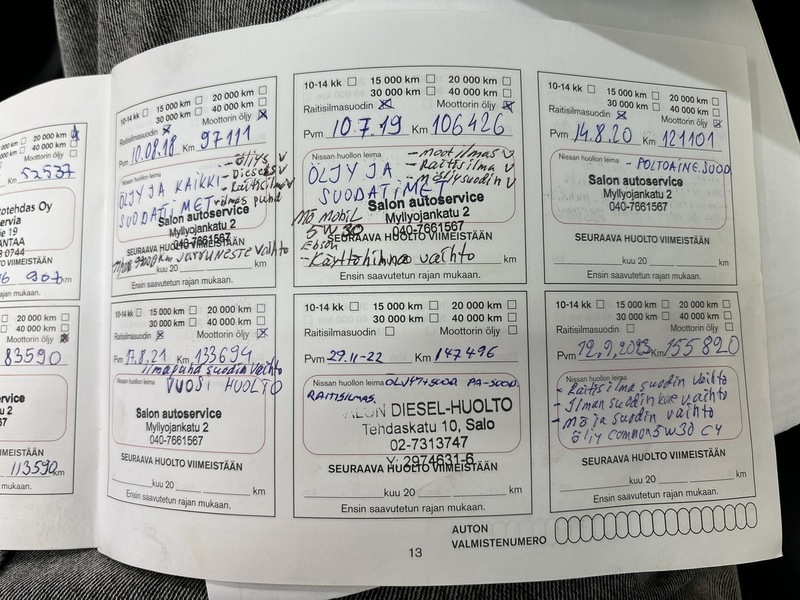 20 000 km
40 000 km
Moottorin öljy
Km 52537
otehdas Oy
ervia
ie 19
ANTAA
0744
TO VIIMEISTÄÄN
km
rajan mukaan.
20 000 km
40 000 km
Moottorin öljy
83590
ervice
u 2
67
VIIMEISTÄÄN
113590 km
n mukaan.
10-14 kk 15 000 km 20 000 km
30 000 km 40 000 km
Raitisilmasuodin Moottorin öljy
Pvm 10.08.18 Km 97111
Nissan huollon leima
- öljys V
- Diesels V
- Raitisilma V
ÖLJY JA KAIKKI
SUODATIMET
Salon autoservice
Myllyojankatu 2
040-7661567
SEURAAVA HUOLTO VIIMEISTÄÄN
Jarruneste vaihto
kuu 20 km
Ensin saavutetun rajan mukaan.
10-14 kk 15 000 km 20 000 km
30 000 km 40 000 km
Raitisilmasuodin Moottorin öljy
Pvm 10.7.19 Km 106426
Nissan huollon leima
- Moot ilmas V
- Raitisilma V
- Möljysuodin V
ÖLJY JA
SUODATIMET
Salon autoservice
Myllyojankatu 2
040-7661567
Mö Mobil
5W30
SEURAAVA HUOLTO VIIMEISTÄÄN
- Käyttöhihna vaihto
kuu 20 km
Ensin saavutetun rajan mukaan.
10-14 kk 15 000 km 20 000 km
30 000 km 40 000 km
Raitisilmasuodin Moottorin öljy
Pvm 14.8.20 Km 121101
Nissan huollon leima
- POLTOAINE.SUOD
Salon autoservice
Myllyojankatu 2
040-7661567
SEURAAVA HUOLTO VIIMEISTÄÄN
kuu 20 km
Ensin saavutetun rajan mukaan.
10-14 kk 15 000 km 20 000 km
30 000 km 40 000 km
Raitisilmasuodin Moottorin öljy
Pvm 17.8.21 Km 133694
suodin vaihto
Nissan huollon leima
VUOSI HUOLTO
Salon autoservice
Myllyojankatu 2
040-7661567
SEURAAVA HUOLTO VIIMEISTÄÄN
kuu 20 km
Ensin saavutetun rajan mukaan.
10-14 kk 15 000 km 20 000 km
30 000 km 40 000 km
Raitisilmasuodin Moottorin öljy
Pvm 29.11-22 Km 147496
Nissan huollon leima ÖLJYT+SUOD PA-SUOD.
RAITISILMAS.
SALON DIESEL-HUOLTO
Tehdaskatu 10, Salo
02-7313747
Y: 2974631-6
SEURAAVA HUOLTO VIIMEISTÄÄN
kuu 20 km
Ensin saavutetun rajan mukaan.
10-14 kk 15 000 km 20 000 km
30 000 km 40 000 km
Raitisilmasuodin Moottorin öljy
Pvm 12.9.2023 Km 155820
Nissan huollon leima
- Raitisilma suodin vaihto
- Ilman suodin vaihto
- Mö ja suodin vaihto
öljy 5w30 C4
SEURAAVA HUOLTO VIIMEISTÄÄN
kuu 20 km
Ensin saavutetun rajan mukaan.
AUTON
VALMISTENUMERO
13